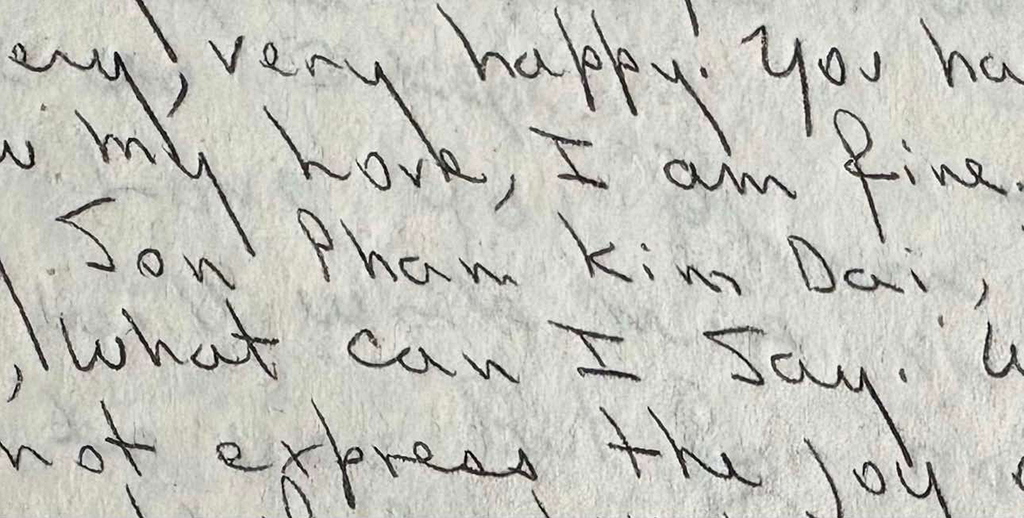 ery, very happy. You ha
w my love, I am fine.
Son Pham Kim Dai,
, what can I say. W
not express the joy